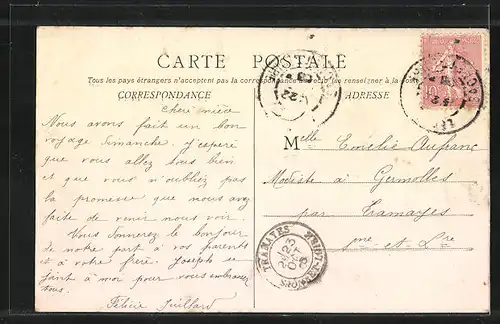 CARTE POSTALE
Tous les pays étrangers n'acceptent pas la correspondance au recto (se renseigner à la poste)
CORRESPONDANCE
ADRESSE
Cheri nièce
Nous avons fait un bon
voyage Dimanche. J'esperé
que vous allez tous bien
et que vous n'oubliez pas
la promesse que nous avez
faite de venir nous voir.
Vous donnerez le bonjour
de notre part à vos parents
et à votre frère. Joseph se
joint à moi pour vous embrasser
tous.
Félicie Guillard
Melle Emelie Aufranc
Modiste à Germolles
par Tramayes
Sne et Lre
TRAMAYES
SAONE-ET-LOIRE
23